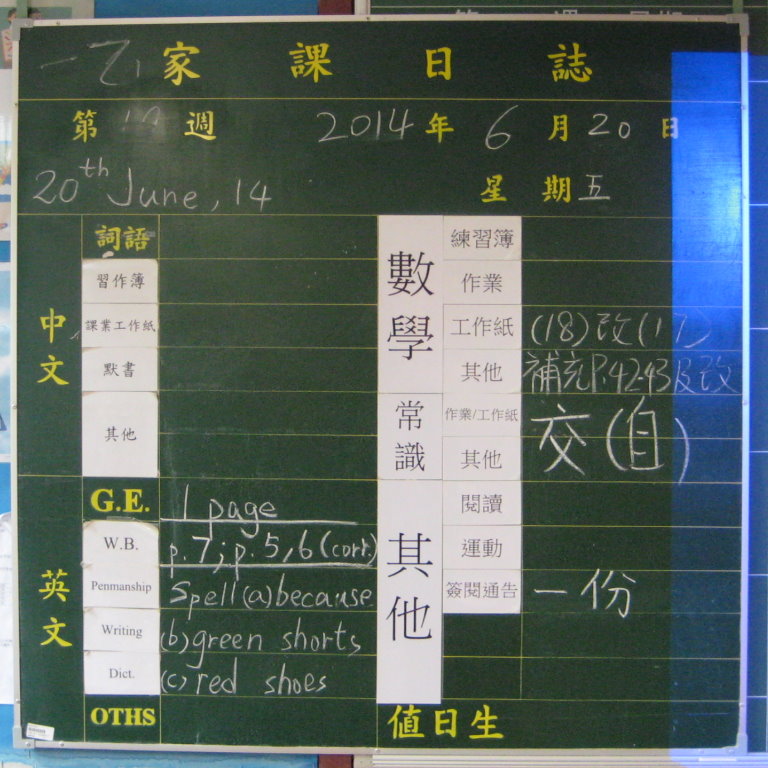 一乙 家課日誌
第 週 2014年 6月20日
20th June, 14 星期五
中文
詞語
習作簿
課業工作紙
默書
其他
英文
G.E. 1 page
W.B. p.7; p.5,6 (corr.)
Penmanship Spell (a) because
Writing (b) green shorts
Dict. (c) red shoes
OTHS
數學
練習簿
作業
工作紙 (18) 改(17)
其他 補充P.42-43及改
常識
作業/工作紙 交(自)
其他
其他
閱讀
運動
簽閱通告 一份
值日生